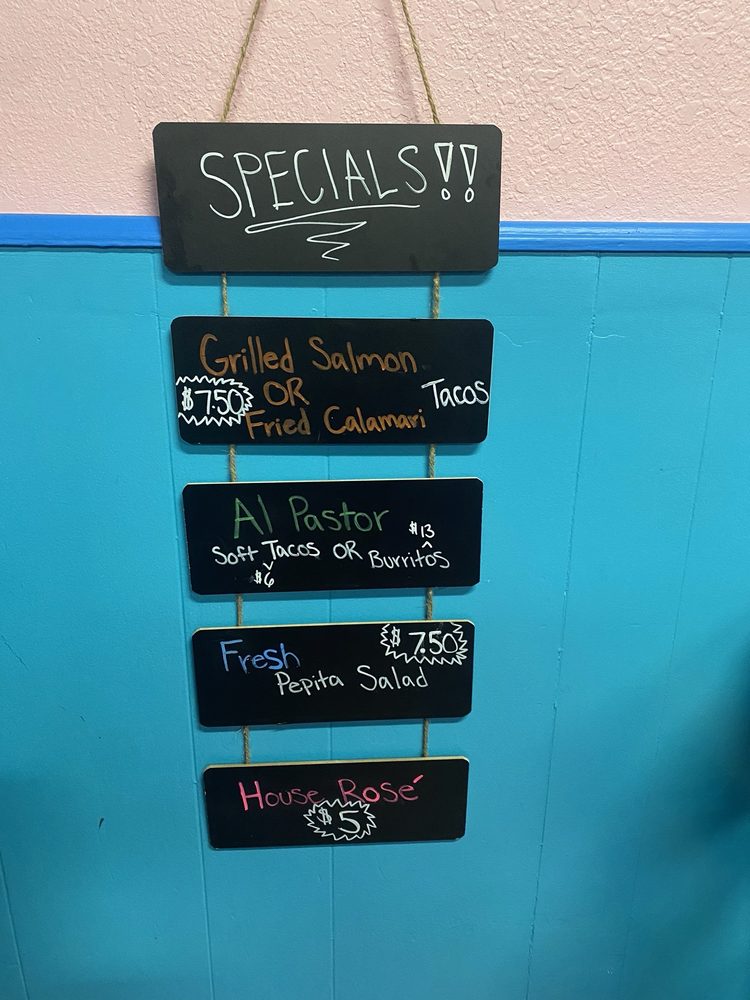 SPECIALS!!
Grilled Salmon
$7.50 OR Tacos
Fried Calamari
Al Pastor
$13
Soft Tacos OR Burritos
$6
$7.50
Fresh
Pepita Salad
House Rosé
$5